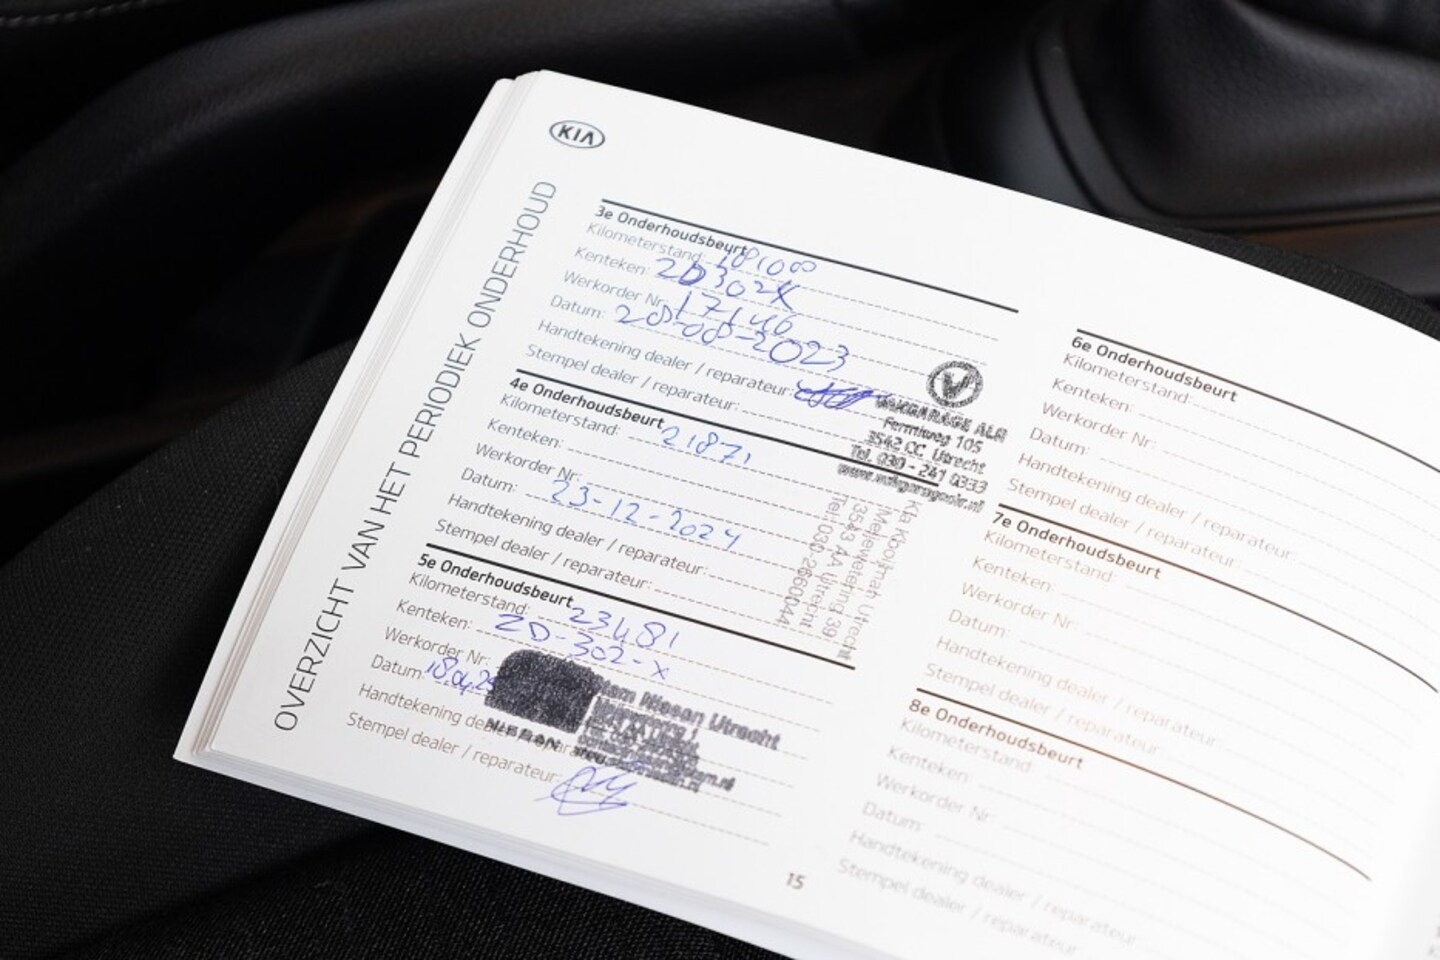 KIA
OVERZICHT VAN HET PERIODIEK ONDERHOUD
3e Onderhoudsbeurt
Kilometerstand: 18108
Kenteken: ZD302X
Werkorder Nr: 17146
Datum: 28-08-2023
Handtekening dealer / reparateur:
Stempel dealer / reparateur:
VAKGARAGE ALR
Fermiweg 105
3542 CC Utrecht
Tel. 030 - 241 0333
www.vakgaragealr.nl
4e Onderhoudsbeurt
Kilometerstand: 21871
Kenteken:
Werkorder Nr:
Datum: 23-12-2024
Handtekening dealer / reparateur:
Stempel dealer / reparateur:
Kia Kooijman Utrecht
Meijewetering 39
3543 AA Utrecht
Tel: 030-2660044
5e Onderhoudsbeurt
Kilometerstand: 23481
Kenteken: ZD-302-X
Werkorder Nr:
Datum: 18.04.25
Handtekening dealer / reparateur:
Stempel dealer / reparateur:
NISSAN
Nissan Utrecht
15
6e Onderhoudsbeurt
Kilometerstand:
Kenteken:
Werkorder Nr:
Datum:
Handtekening dealer / reparateur:
Stempel dealer / reparateur:
7e Onderhoudsbeurt
Kilometerstand:
Kenteken:
Werkorder Nr:
Datum:
Handtekening dealer / reparateur:
Stempel dealer / reparateur:
8e Onderhoudsbeurt
Kilometerstand:
Kenteken:
Werkorder Nr:
Datum:
Handtekening dealer / reparateur:
Stempel dealer / reparateur: